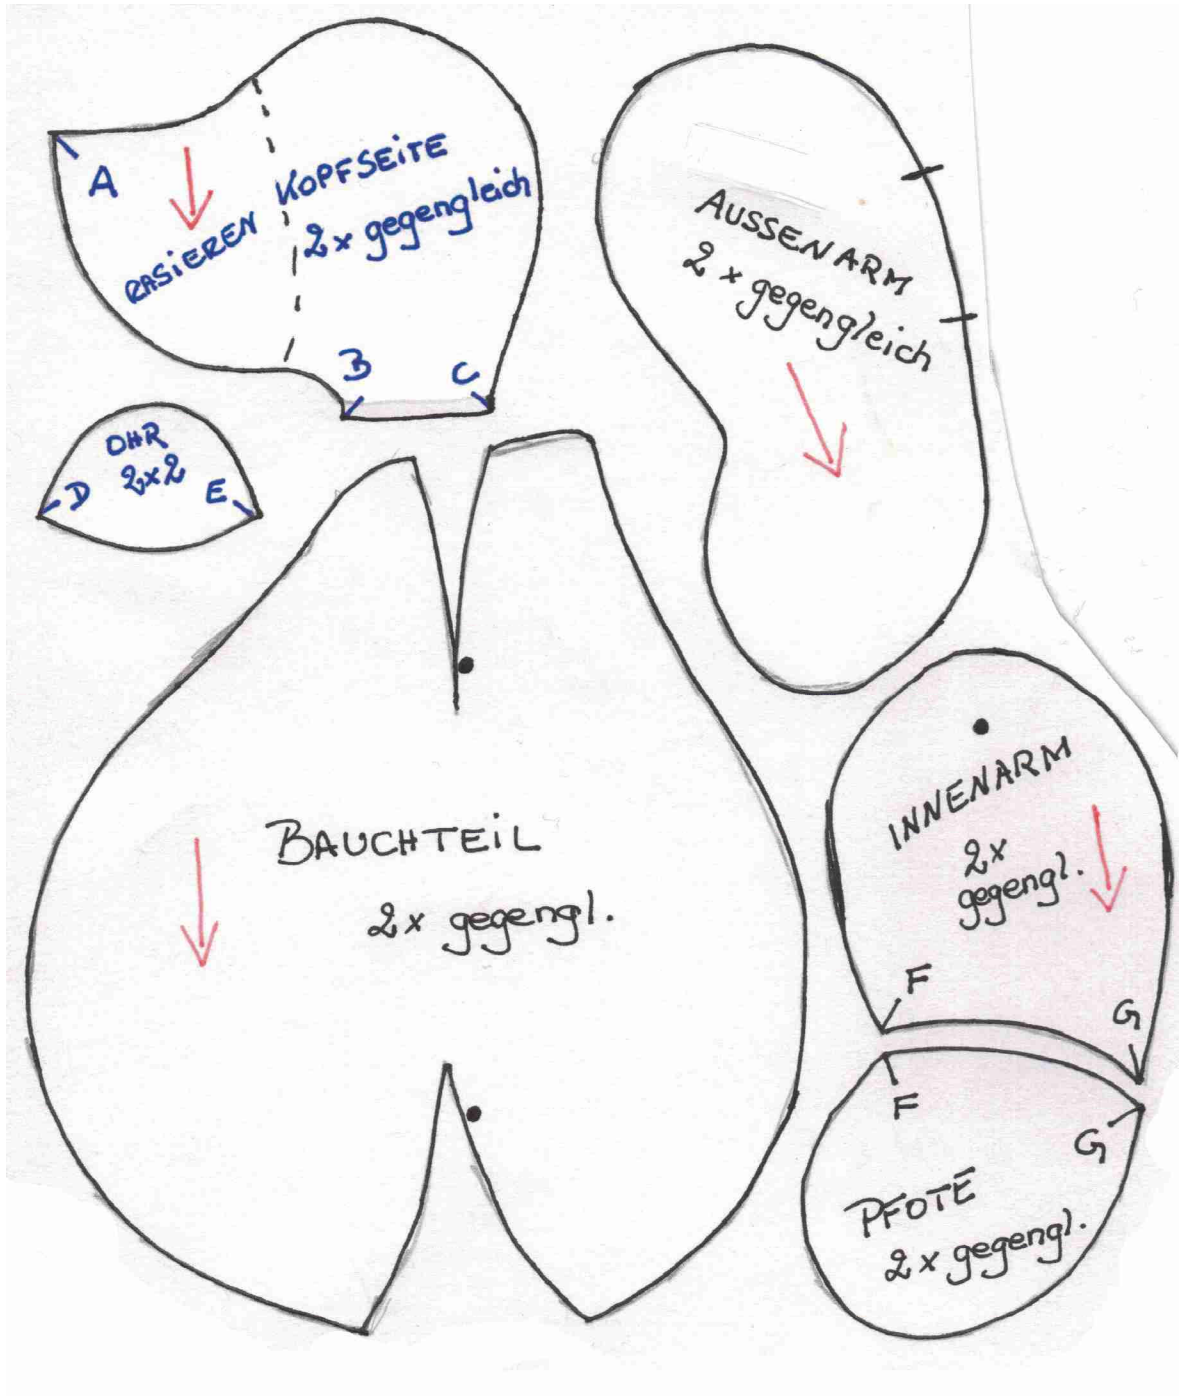 A
RASiEREN
KOPFSEiTE
2x gegengleich
B
C
OHR
2x2
D
E
AUSSENARM
2x gegengleich
BAUCHTEiL
2x gegengl.
INNENARM
2x
gegengl.
F
G
F
G
PFOTE
2x gegengl.